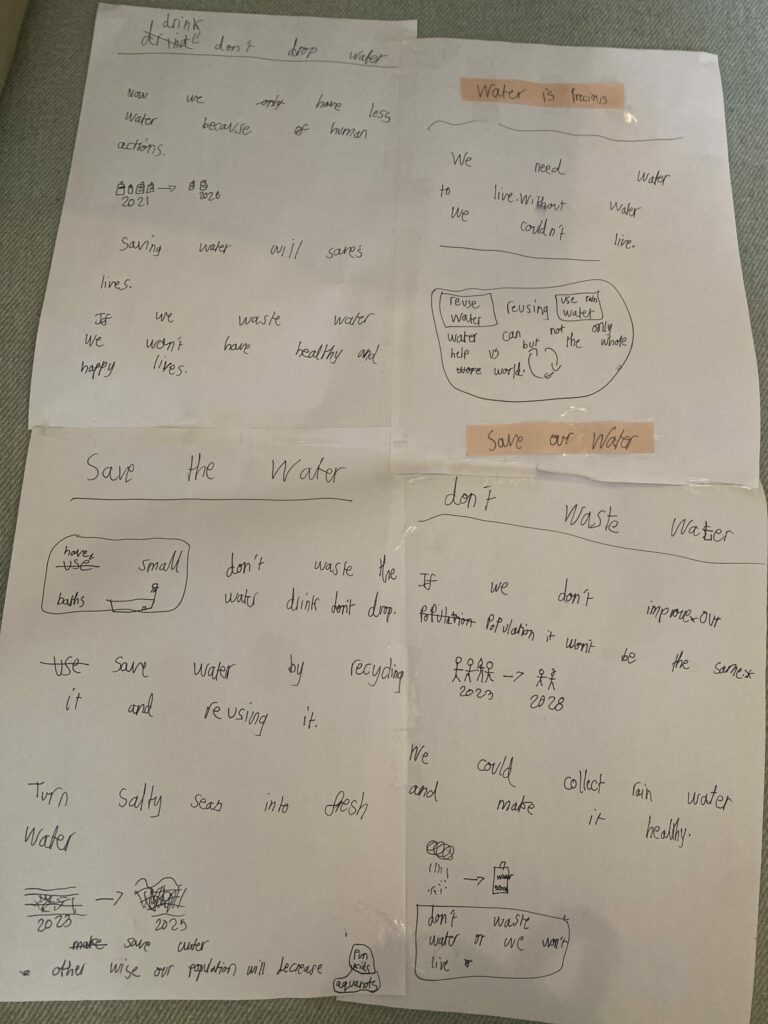 drink
drink don't drop water
Now we only have less
water because of human
actions.
2021 2026
Saving water will saves
lives.
If we waste water
we won't have healthy and
happy lives.
Water is Precious
We need water
to live. Without water
we couldn't live.
reuse water
reusing
use rain water
water can not only
help us but the whole
more world.
Save our Water
Save the Water
have
use small
baths
don't waste the
water drink don't drop.
use save water by recycling
it and reusing it.
Turn salty seas into fresh
water
2023 2025
make save water
other wise our population will decrease
fin
kids
aquanots
don't waste water
If we don't improve our
population population it won't be the same.*
2023 2028
We could collect rain water
and make it healthy.
don't waste
water or we won't
live